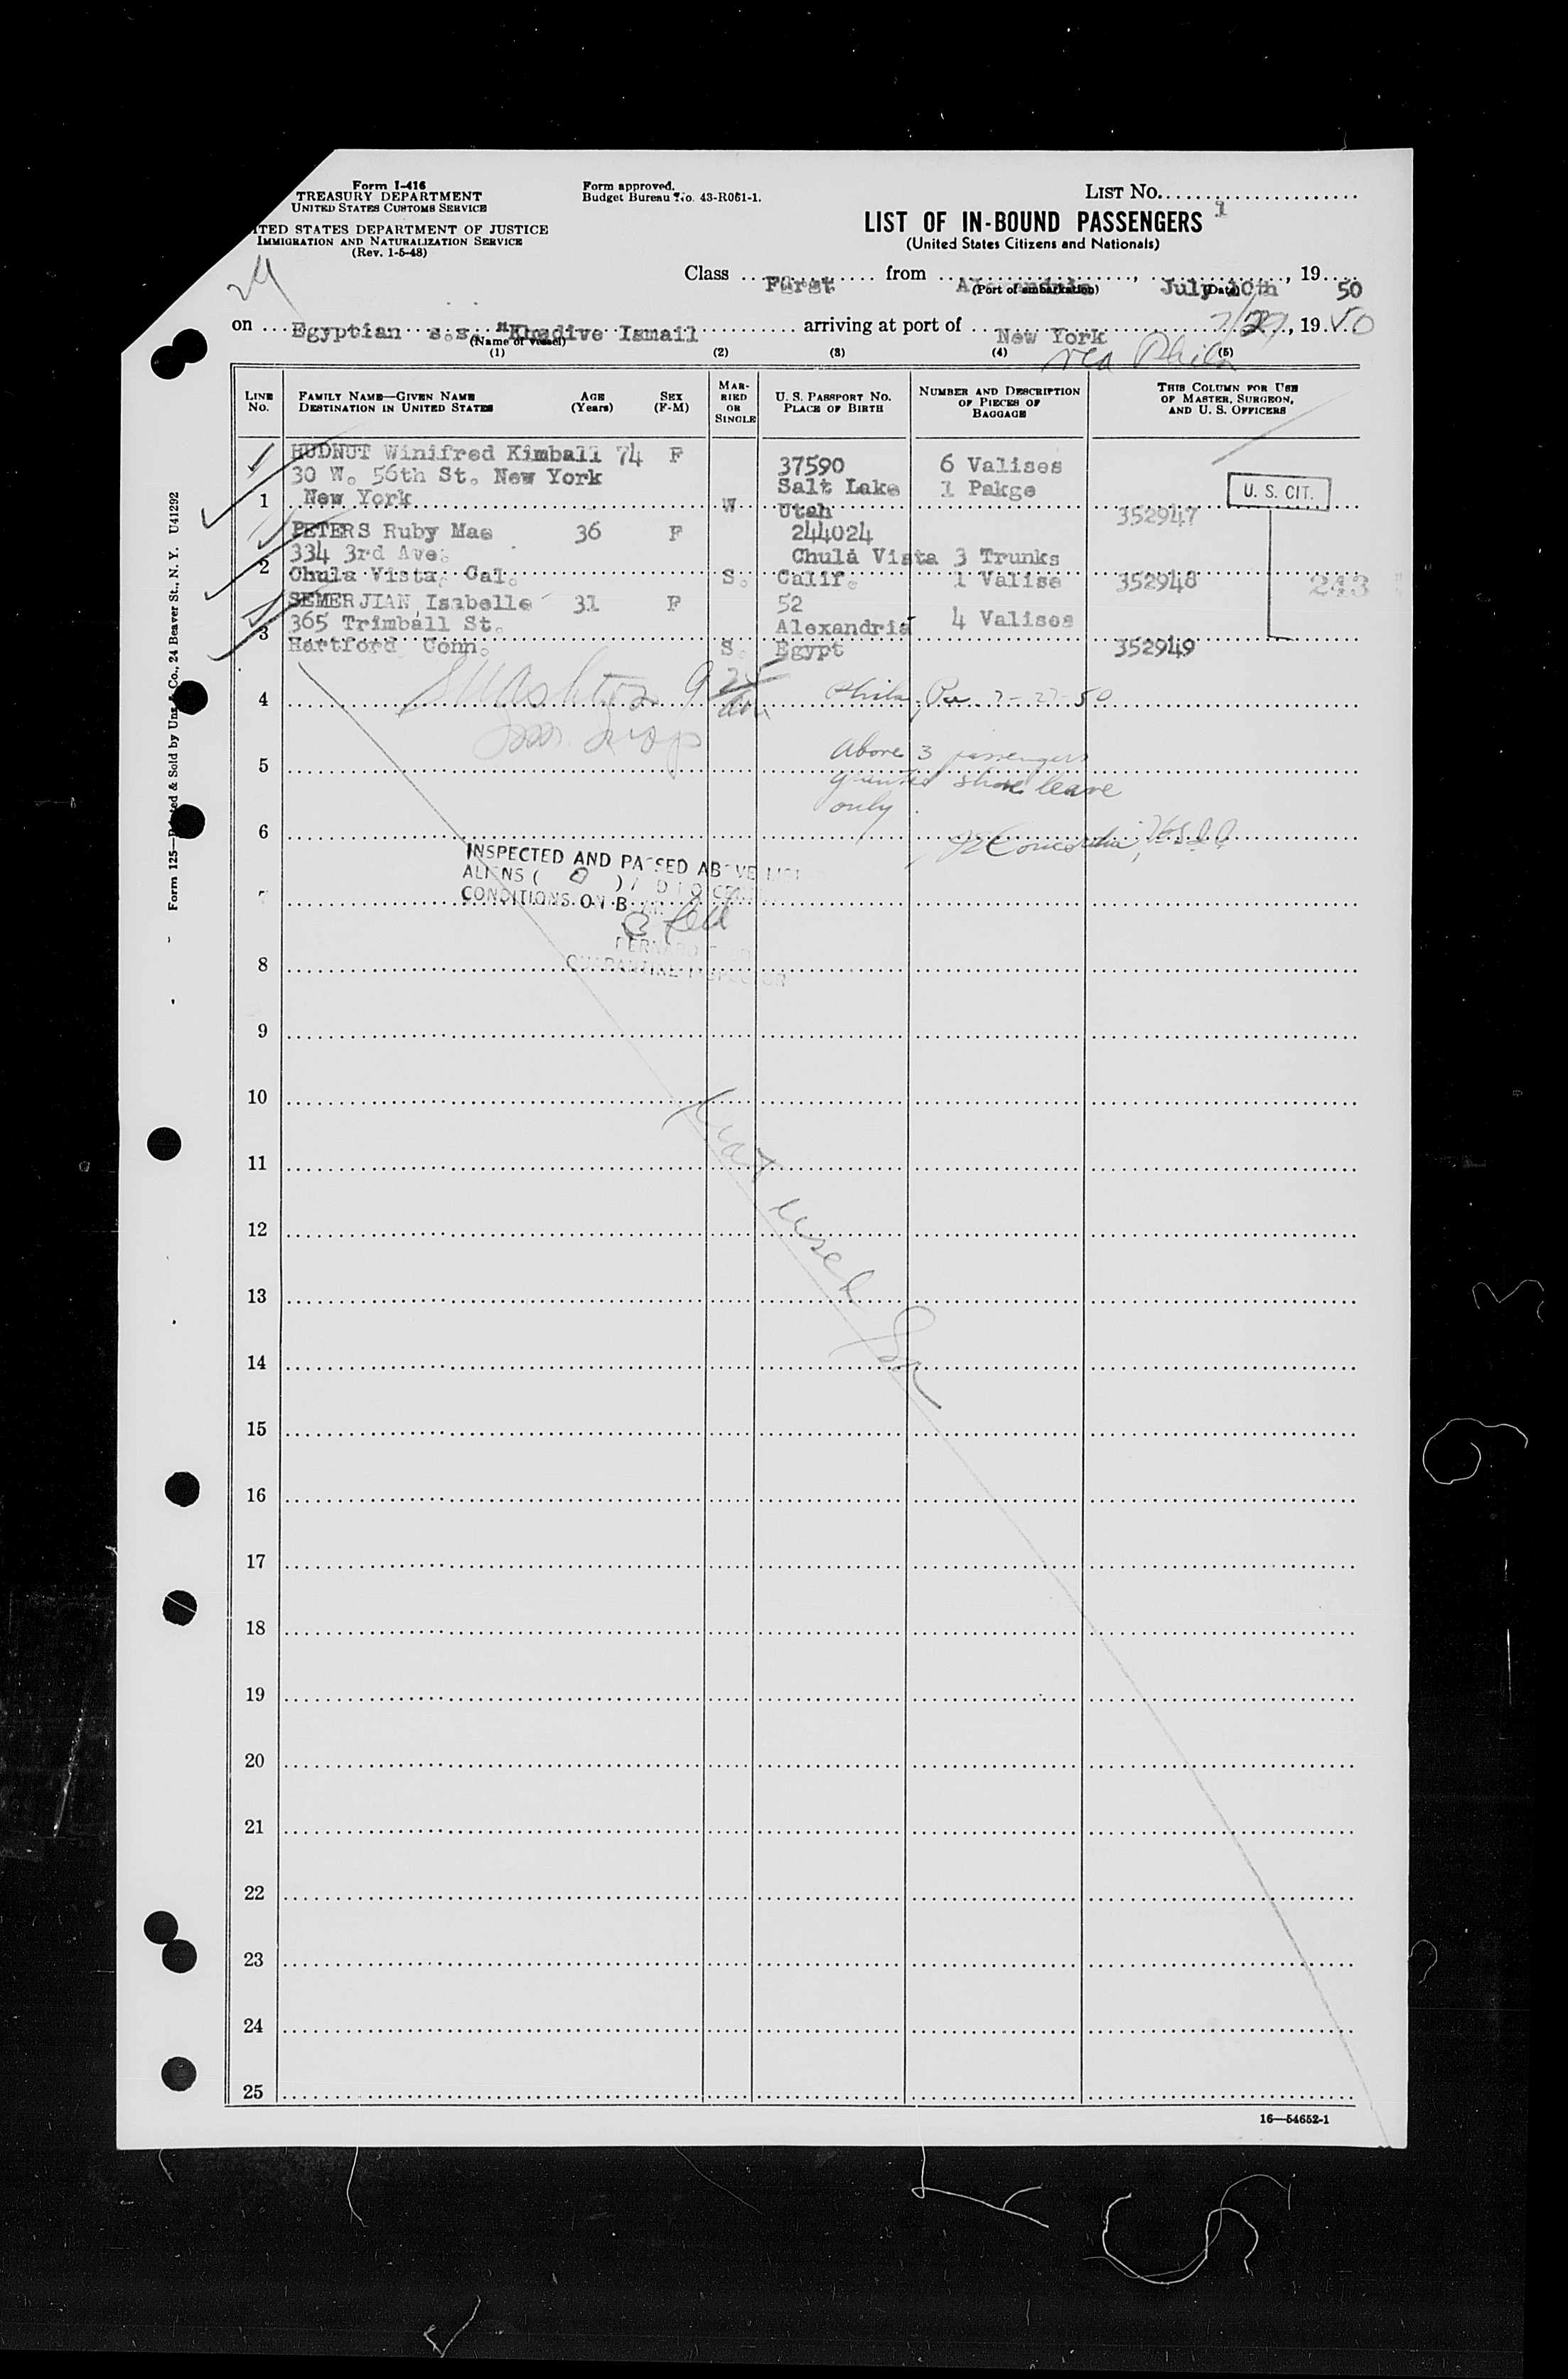 Form I-416
TREASURY DEPARTMENT
UNITED STATES CUSTOMS SERVICE
ITED STATES DEPARTMENT OF JUSTICE
IMMIGRATION AND NATURALIZATION SERVICE
(Rev. 1-5-48)
Form approved.
Budget Bureau No. 43-R061-1.
LIST NO.
1
LIST OF IN-BOUND PASSENGERS
(United States Citizens and Nationals)
24
Class First from Alexandria, July 10th, 1950
(Port of embarkation) (Date)
on Egyptian s.s. "Khedive Ismail arriving at port of New York 7/27, 1950
(Name of vessel)
via Phila
(1) (2) (3) (4) (5)
LINE No.
FAMILY NAME—GIVEN NAME
DESTINATION IN UNITED STATES
AGE (Years)
SEX (F-M)
MARRIED OR SINGLE
U. S. PASSPORT NO.
PLACE OF BIRTH
NUMBER AND DESCRIPTION OF PIECES OF BAGGAGE
THIS COLUMN FOR USE OF MASTER, SURGEON, AND U. S. OFFICERS
HUDNUT Winifred Kimball 74 F 37590 6 Valises
30 W. 56th St. New York Salt Lake 1 Pakge U. S. CIT.
1 New York W Utah 352947
PETERS Ruby Mae 36 F 244024
334 3rd Ave. Chula Vista 3 Trunks
2 Chula Vista, Cal. S. Calif. 1 Valise 352948 243
SEMERJIAN Isabelle 31 F 52
365 Trimball St. Alexandria 4 Valises
3 Hartford Conn. S. Egypt 352949
4 Phila, Pa 7-27-50
5 Above 3 passengers
granted shore leave
only
6
INSPECTED AND PASSED ABOVE LIST
ALIENS ( 0 )
CONDITIONS ON B
7
8
QUARANTINE INSPECTOR
9
10
11
Not used
12
13
14
15
16
17
18
19
20
21
22
23
24
25
16—54652-1
Form 125—Printed & Sold by Unz & Co., 24 Beaver St., N. Y. U41292